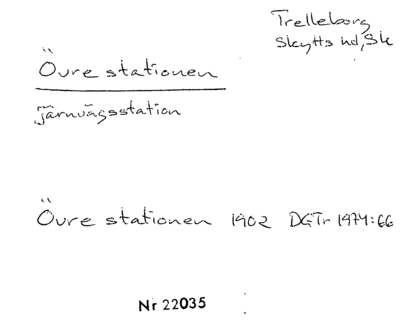 Trelleborg
Skytts hd, Sk
Övre stationen
järnvägsstation
Övre stationen 1902 DGTr 1974:66
Nr 22035